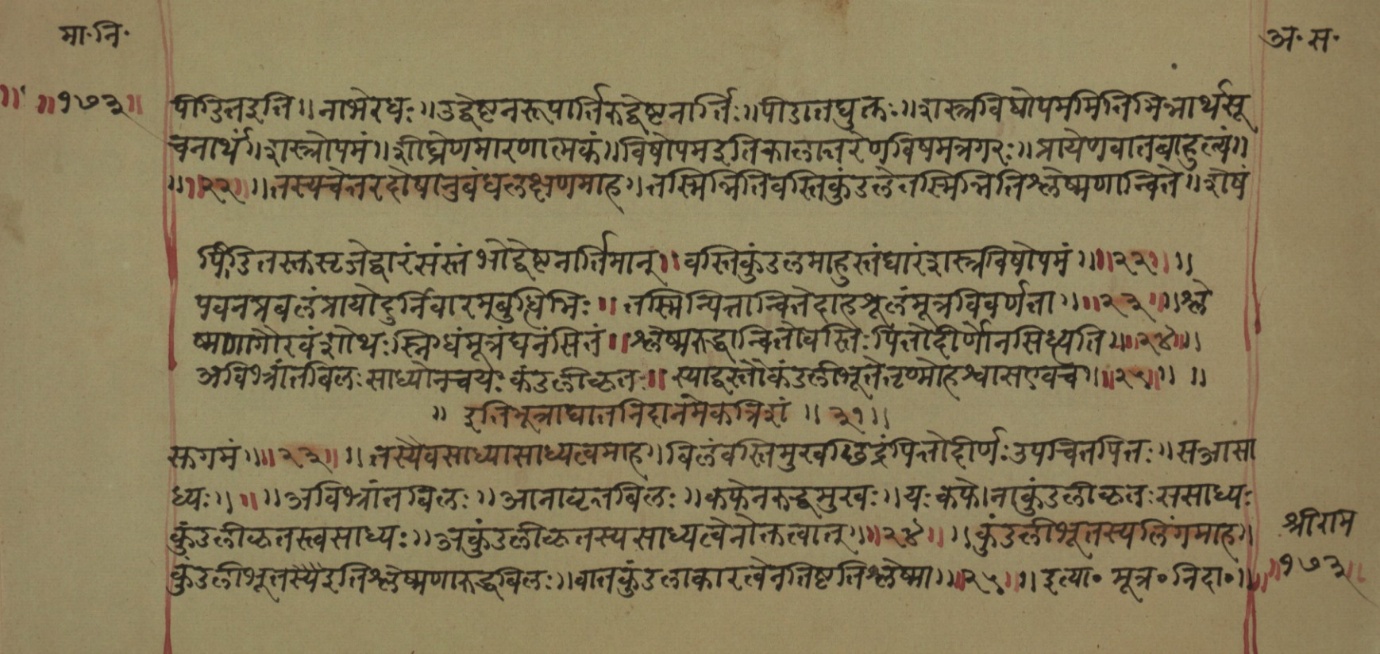 मा॰ नि॰
अ॰ स॰
॥१७३॥
पीडितइति॥ नाभेरधः॥ उद्वेष्टनरूपार्तिरुद्वेष्टनार्तिः॥ पीडातयुक्तः॥ शस्त्रविषोपममितिभिन्नार्थसू
चनार्थं॥ शस्त्रोपमं॥ शीघ्रेणमारणात्मकं॥ विषोपमइतिकालांतरेण विषमन्नगरः॥ प्रायेणवातबाहुल्यं॥
॥२२॥ तस्यचेतरदोषानुबंधलक्षणमाह॥ तस्मिन्नितिवस्तिकुंडलेतस्मिन्नितिश्लेष्मणान्विते॥ शेषं
पीडितस्तुसृजेद्धारंसंस्तंभोद्वेष्टनार्तिमान्॥ वस्तिकुंडलमाहुस्तंघोरंशस्त्रविषोपमं॥२२॥
पवनप्रबलंप्रायोदुर्निवारमबुद्धिभिः॥ तस्मिन्पित्तान्वितेदाहशूलंमूत्रविवर्णता॥२३॥ श्ले
ष्मणागौरवंशोथःस्निग्धंमूत्रंघनंसितं॥ श्लेष्मरुद्धान्वितोवस्तिःपित्तोदीर्णोनसिध्यति॥२४॥
अविभ्रांतबिलःसाध्योनचयः कुंडलीकृतः॥ स्याद्वस्तौकुंडलीभूतेतृण्मोहश्वासएवच॥२५॥
॥ इतिमूत्राघातनिदानमेकत्रिंशं॥३१॥
सुगमं॥२३॥ तस्यैवसाध्यासाध्यत्वमाह॥ बिलंवस्तिमुखछिद्रंपित्तोदीर्णःउपचितपित्तः॥ सअसा
ध्यः॥ अविभ्रांतबिलः॥ अनावृतबिलः॥ कफेनरुद्धमुखः॥ यः कफेनाकुंडलीकृतःससाध्यः
कुंडलीकृतस्त्वसाध्यः॥ अकुंडलीकृतस्यसाध्यत्वेनोक्तत्वात्॥२४॥ कुंडलीभूतस्यलिंगमाह॥
कुंडलीभूतस्यैइतिश्लेष्मणारुद्धबिलः॥ वातकुंडलाकारत्वेनतिष्टतिश्लेष्मा॥२५॥ इत्या॰ मूत्र॰ निदा॰॥
श्रीराम
॥१७३॥